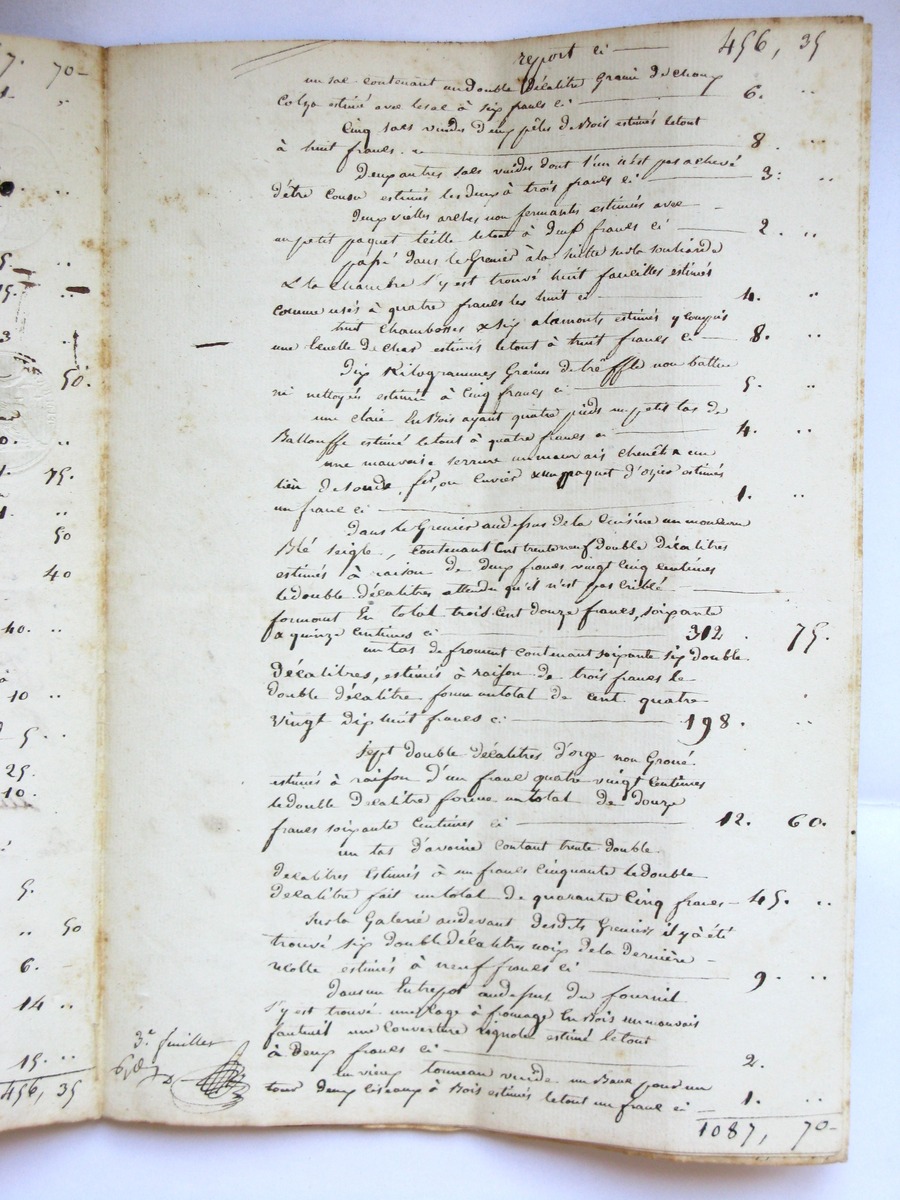 7. 70-
50.
75.
50
40
40.
10
5.
25.
10.
5.
50
6.
14
15.
456, 35
report ci 456, 35
un sac contenant un double Décalitre Graine de choux
Colza estimé avec le sac à six francs ci 6.
Cinq sacs vuides deux pèles de Bois estimés le tout
à huit francs. 8
Deux autres sacs vuides dont l'un n'est pas achevé
d'être cousu estimés les deux à trois francs ci 3:
Deux vielles arches non fermants estimées avec
un petit paquet teille le tout à deux francs ci 2.
passé dans le Grenier à la suite sur la souliarde
& la chambre s'y est trouvé huit faucilles estimés
comme usés à quatre francs les huit ci 4.
huit chambosses & six alamonts estimés y compris
une benelle de char estimés le tout à huit francs ci 8.
Dix Kilogrammes Graines de trêffle non battue
ni nettoyés estimée à Cinq francs ci 5.
une claie En Bois ayant quatre pieds un petit tas de
Ballouffe estimé le tout à quatre francs ci 4.
une mauvaise serrure un mauvais chenêt & un
lien de fer, ou Cuvier & un paquet d'ozier estimés
un franc ci 1.
Dans le Grenier au dessus de la Cuisine un monceau
Blé seigle, Contenant Cent trente neuf double Décalitres
estimés à raison de deux francs vingt Cinq centimes
le double décalitres attendu qu'il n'est pas criblé
formont En total trois Cent douze francs, soixante
& quinze Centimes ci 312. 75.
un tas de froment contenant soixante six double
Décalitres, estimés à raison de trois francs le
double décalitre forme un total de cent quatre
vingt dix huit francs c: 198.
Sept double décalitres d'orge non Groué
estimés à raison d'un franc quatre vingt Centimes
le double decalitre forme un total de douze
francs soixante Centimes ci 12. 60.
un tas d'avoine contant trente double
decalitres Estimés à un francs Cinquante le double
Decalitre fait un total de quarante Cinq francs - 45.
Sur la Galerie au devant des dits Greniers il y à été
trouvé six double décalitres noix de la Dernière
recolte estimés à neuf francs ci 9.
Dans un Entrepot au dessus du fournil
s'y est trouvé une cage à fromage En Bois un mauvais
fauteuil une Couverture estimé le tout
à Deux francs ci 2.
un vieux tonneau vuide un Banc pour un
tour deux Ciseaux à Bois estimés le tout un franc ci 1.
1087, 70-
3.e feuillet